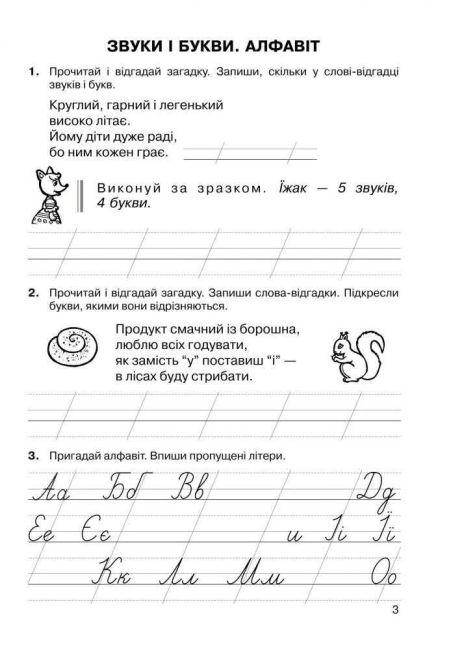 ЗВУКИ І БУКВИ. АЛФАВІТ
1. Прочитай і відгадай загадку. Запиши, скільки у слові-відгадці
звуків і букв.
Круглий, гарний і легенький
високо літає.
Йому діти дуже раді,
бо ним кожен грає.
Виконуй за зразком. Їжак — 5 звуків,
4 букви.
2. Прочитай і відгадай загадку. Запиши слова-відгадки. Підкресли
букви, якими вони відрізняються.
Продукт смачний із борошна,
люблю всіх годувати,
як замість “у” поставиш “і” —
в лісах буду стрибати.
3. Пригадай алфавіт. Впиши пропущені літери.
Аа Бб Вв Дд
Ее Єє и Іі Її
Кк Лл Мм Оо
3